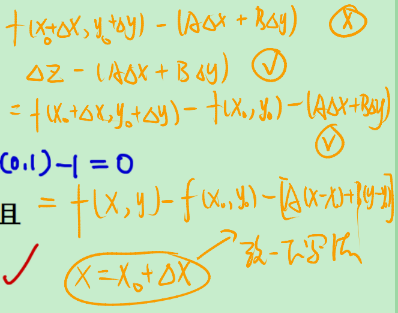 f(x₀+Δx, y₀+Δy) - (AΔx + BΔy) ⓧ
Δz - (AΔx + BΔy) ✓
= f(x₀+Δx, y₀+Δy) - f(x₀, y₀) - (AΔx+BΔy)
✓
(0,1)-1=0
且 = f(x, y) - f(x₀, y₀) - [A(x-x₀)+B(y-y₀)]
✓ x = x₀ + Δx